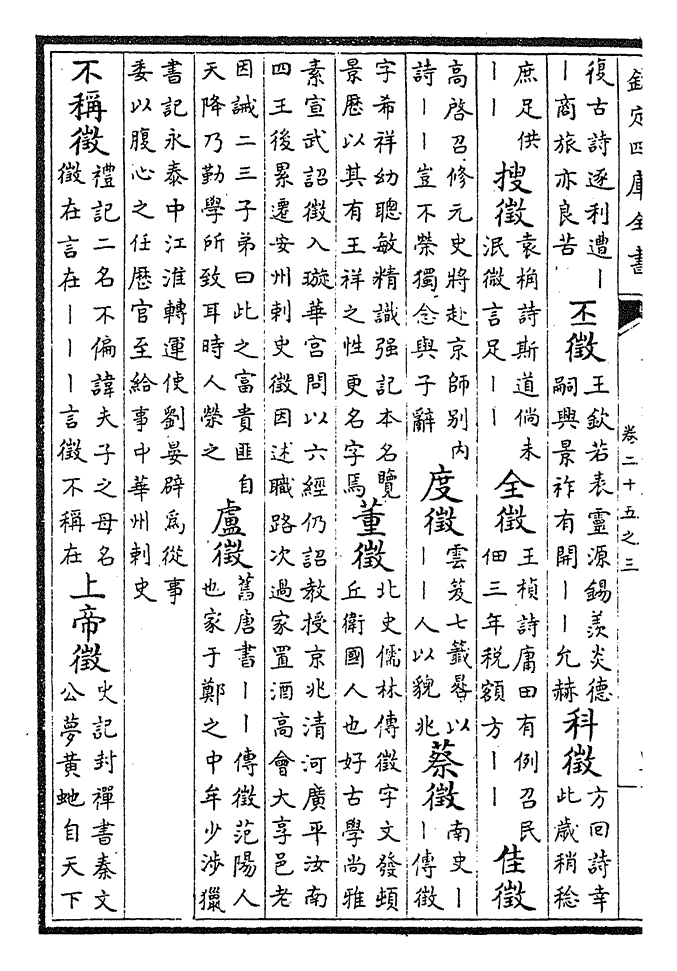 欽定四庫全書
卷二十五之三
復古詩逐利遭｜
｜商旅亦良苦
丕徵
王欽若表靈源錫羨炎德
嗣興景祚有開｜｜允赫
科徵
方回詩幸
此歲稍稔
庶足供
｜｜
搜徵
袁桷詩斯道倘未
泯微言足｜｜
全徵
王楨詩庸田有例召民
佃三年税額方｜｜
佳徵
高啓召修元史將赴京師别内
詩｜｜豈不榮獨念與子辭
度徵
雲笈七籤晷以
｜｜人以貌兆
蔡徵
南史｜
｜傳徵
字希祥幼聰敏精識强記本名覽
景歷以其有王祥之性更名字焉
董徵
北史儒林傳徵字文發頓
丘衛國人也好古學尚雅
素宣武詔徵入璇華宫問以六經仍詔教授京兆清河廣平汝南
四王後累遷安州刺史徵因述職路次過家置酒高會大享邑老
因誡二三子弟曰此之富貴匪自
天降乃勤學所致耳時人榮之
盧徵
舊唐書｜｜傳徵范陽人
也家于鄭之中牟少涉獵
書記永泰中江淮轉運使劉晏辟為從事
委以腹心之任歷官至給事中華州刺史
不稱徵
禮記二名不偏諱夫子之母名
徵在言在｜｜｜言徵不稱在
上帝徵
史記封禪書秦文
公夢黄虵自天下